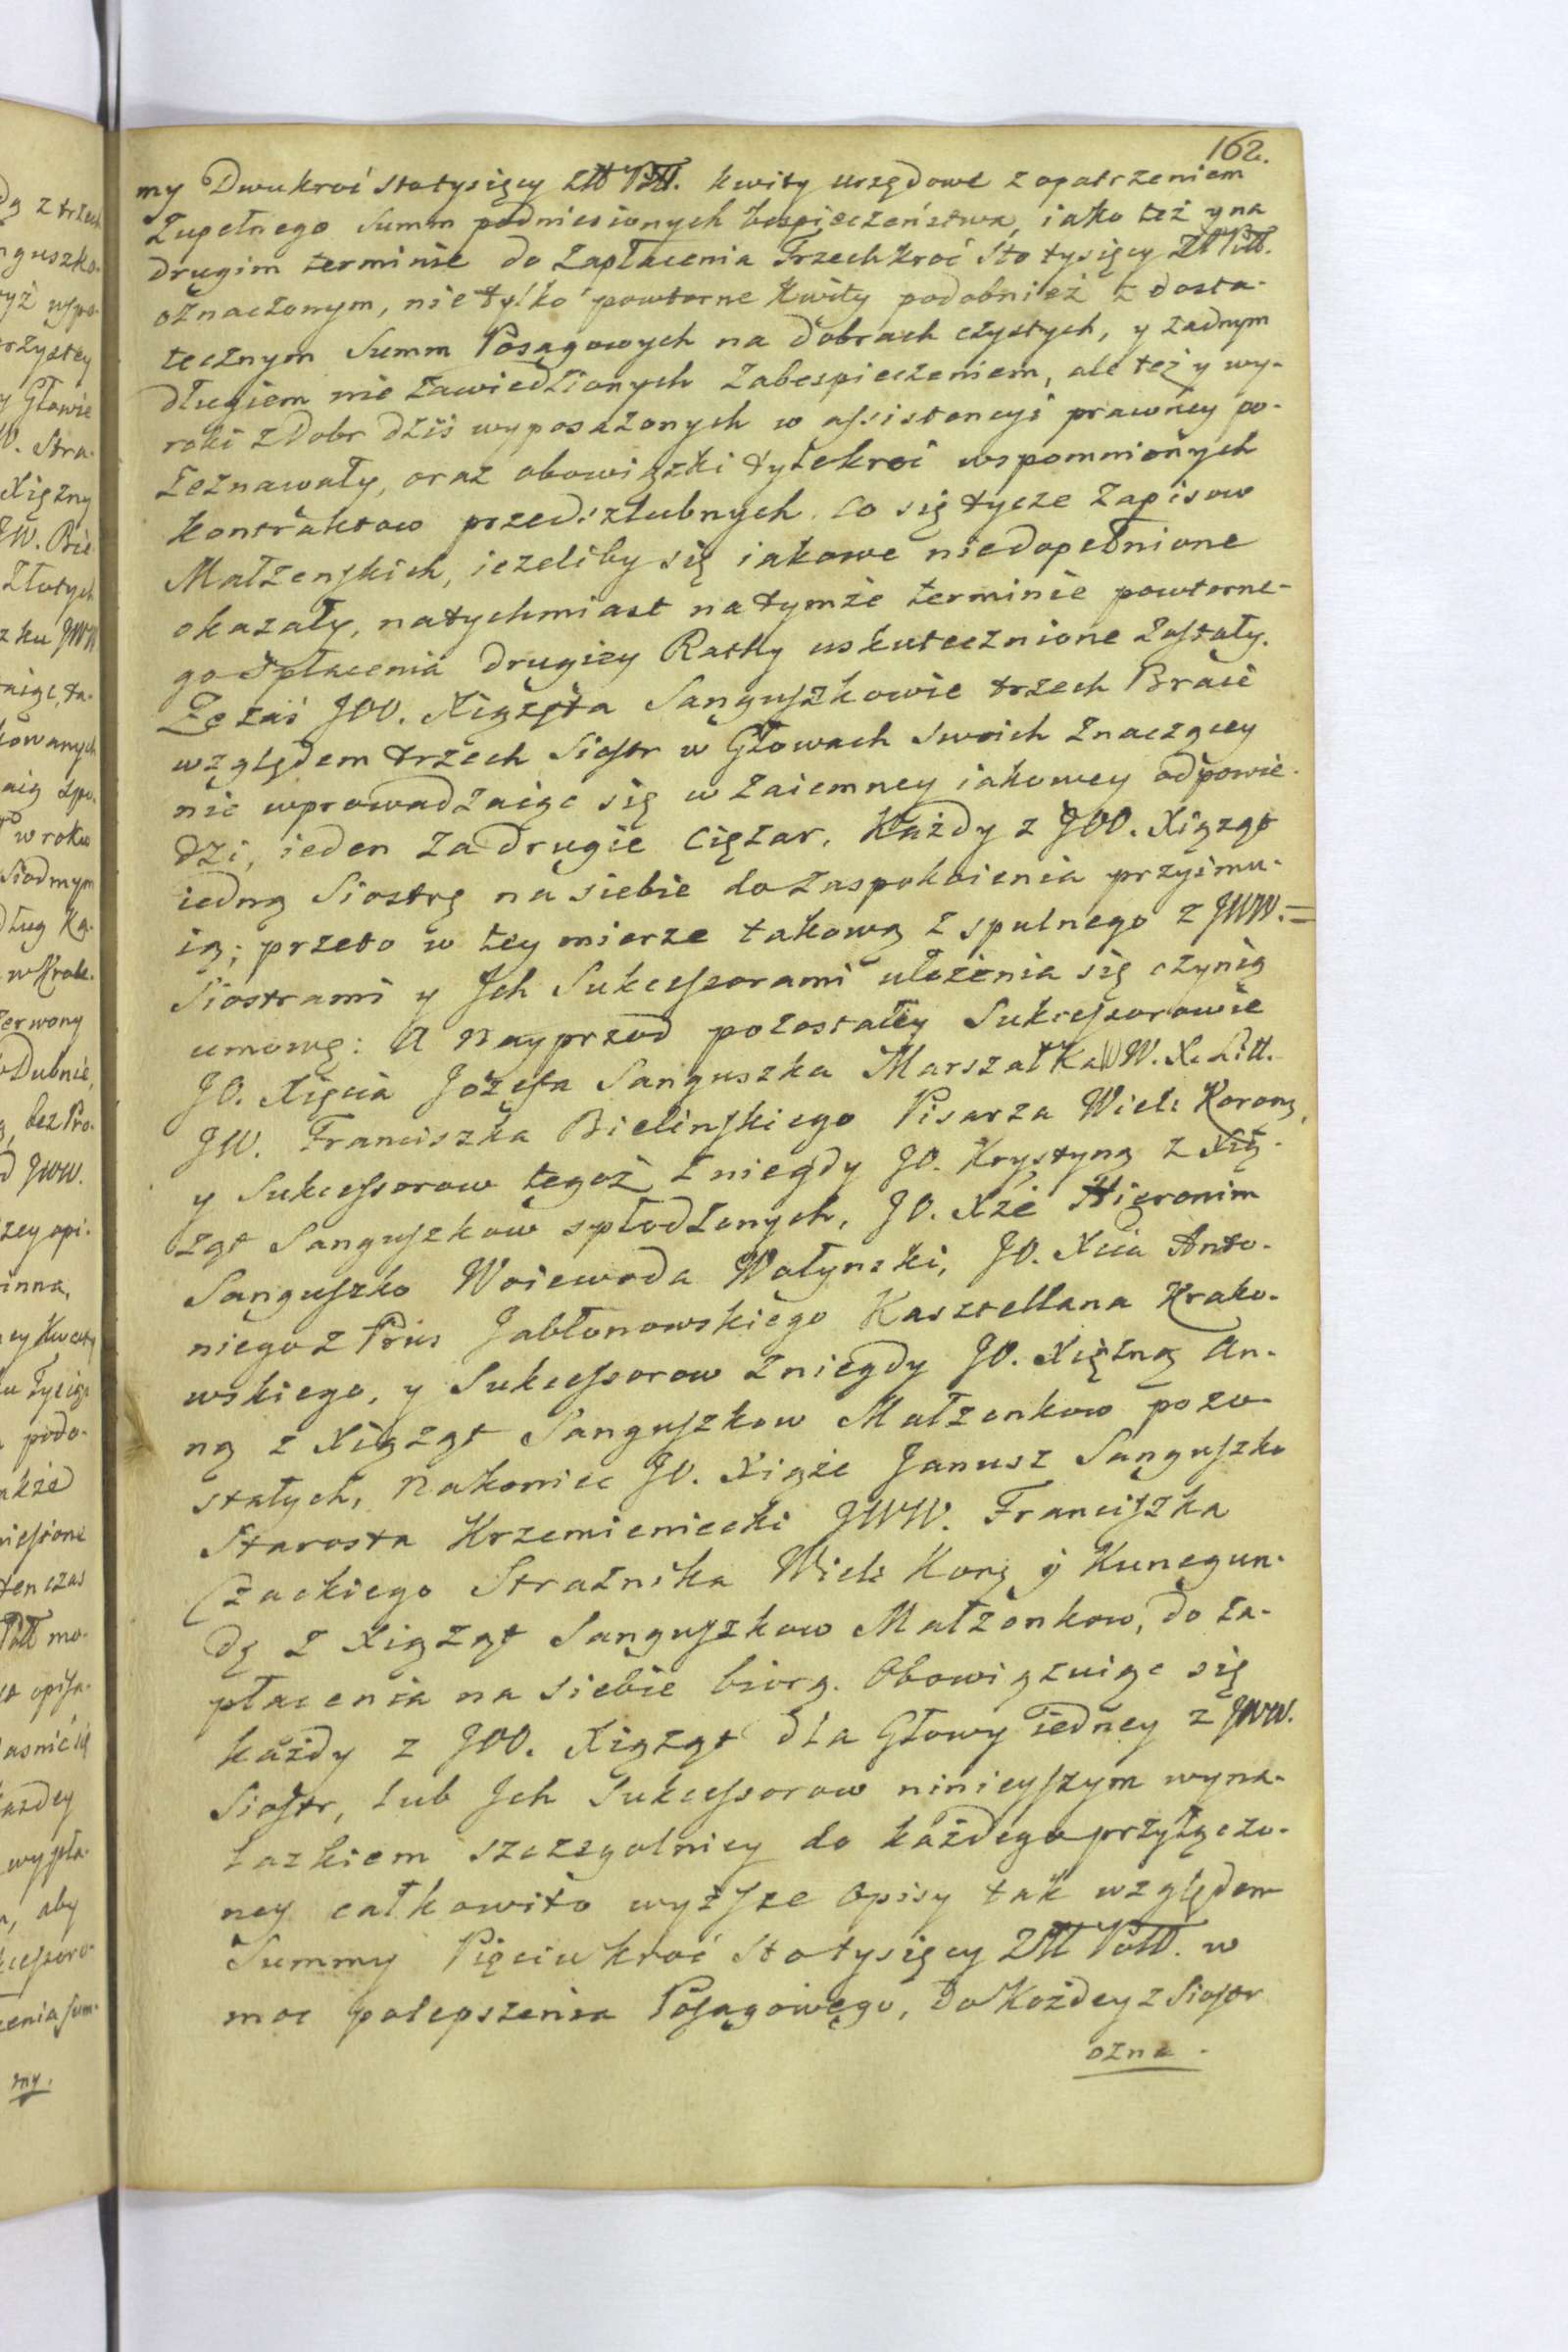 162.
my Dwukroć stotysięcy Złł Poll. kwity urzędowe z opatrzeniem
Zupełnego Summ podniesionych bespieczeństwa, iako też y na
drugim terminie do zapłacenia Trzechkroć Sto tysięcy Złł Poll.
oznaczonym, nie tylko powtorne kwity podobnież z dosta-
tecznym Summ Posągowych na dobrach czystych, y żadnym
długiem nie zawiedzionych zabespieczeniem, ale też y wy-
roki z Dobr dziś wyposażonych w assistencyi prawney po-
zeznawały, oraz obowiązki tylekroć wspomnionych
kontraktow przedszlubnych co się tycze Zapisow
Małżenskich, ieżeliby się iakowe niedopełnione
okazały, natychmiast na tymże terminie powtorne-
go spłacenia drugiey Rathy uskutecznione zostały.
Że zaś JOO. Xiążęta Sanguszkowie trzech Braci
względem trzech Siostr w Głowach swoich znaczącey
nie wprowadzaiąc się w zaiemney iakowey odpowie-
dzi, ieden za drugie ciężar, Każdy z JOO. Xiążąt
iedną Siostrę na siebie do zaspokoienia przyimu-
ią; przeto w tey mierze takową z spulnego z JWW. =
Siostrami y Jch Sukcessorami ułożenia się czynią
umowę: A Nayprzod pozostałey Sukcessorowie
JO. Xięcia Józefa Sanguszka Marszałka W. X. Litt.
JW. Franciszka Bielinskiego Pisarza Wiel: Korong,
y Sukcessorow tegoż z niegdy JO. Krystyną z Xią-
żąt Sanguszkow spłodzonych, JO. Xże Hieronim
Sanguszko Woiewoda Wołynski, JO. Xcia Anto-
niego z Prus Jabłonowskiego Kasztellana Krako-
wskiego, y Sukcessorow z niegdy JO. Xiężną An-
ną z Xiążąt Sanguszkow Małżonkow pozo-
stałych, Nakoniec JO. Xiąże Janusz Sanguszko
Starosta Krzemieniecki JWW. Franciszka
Czackiego Strażnika Wiel: Korg y Kunegun-
dę z Xiążąt Sanguszkow Małżonkow, do za-
płacenia na siebie biorą. Obowiązuiąc się
każdy z JOO. Xiążąt dla Głowy iedney z JWW.
Siostr, lub Jch Sukcessorow ninieyszym wyna-
lazkiem szczegolniey do każdego przyłączo-
ney całkowito wyższe Opisy tak względem
Summy Pięciukroć Stotysięcy Złł Poll. w
moc polepszenia Posągowego, do Każdey z Siostr
ozna-